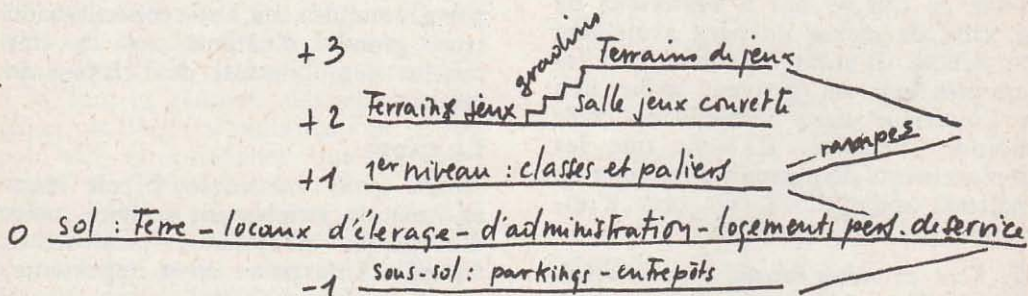 +3 gradins Terrains de jeux
+2 Terrains jeux salle jeux couverte
+1 1er niveau : classes et paliers rampes
0 sol : Terre - locaux d'élevage - d'administration - logements pers. de service
-1 sous-sol : parkings - entrepôts